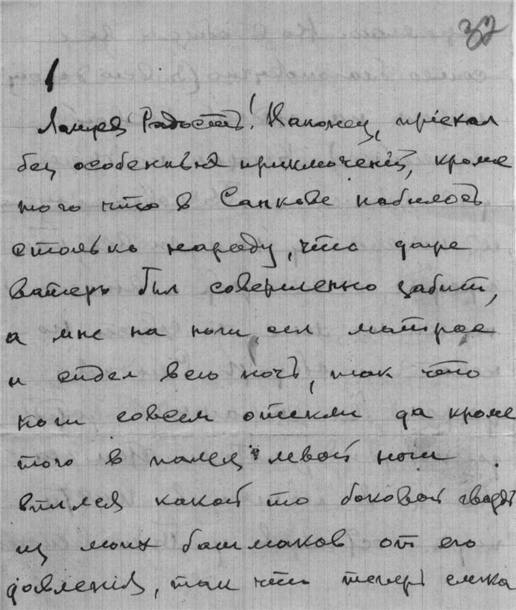 32
1
Радость! Наконец, приехал
без особенных приключений, кроме
того что в Сапкове набилось
столько народу, что даже
ватеръ был совершенно забит,
а мне на ноги сел матрос
и сидел всю ночь, так что
ноги совсем отекли да кроме
того в палец левой ноги
впился какой то боковой гвоздь
из моих башмаков от его
давления, так что теперь слегка